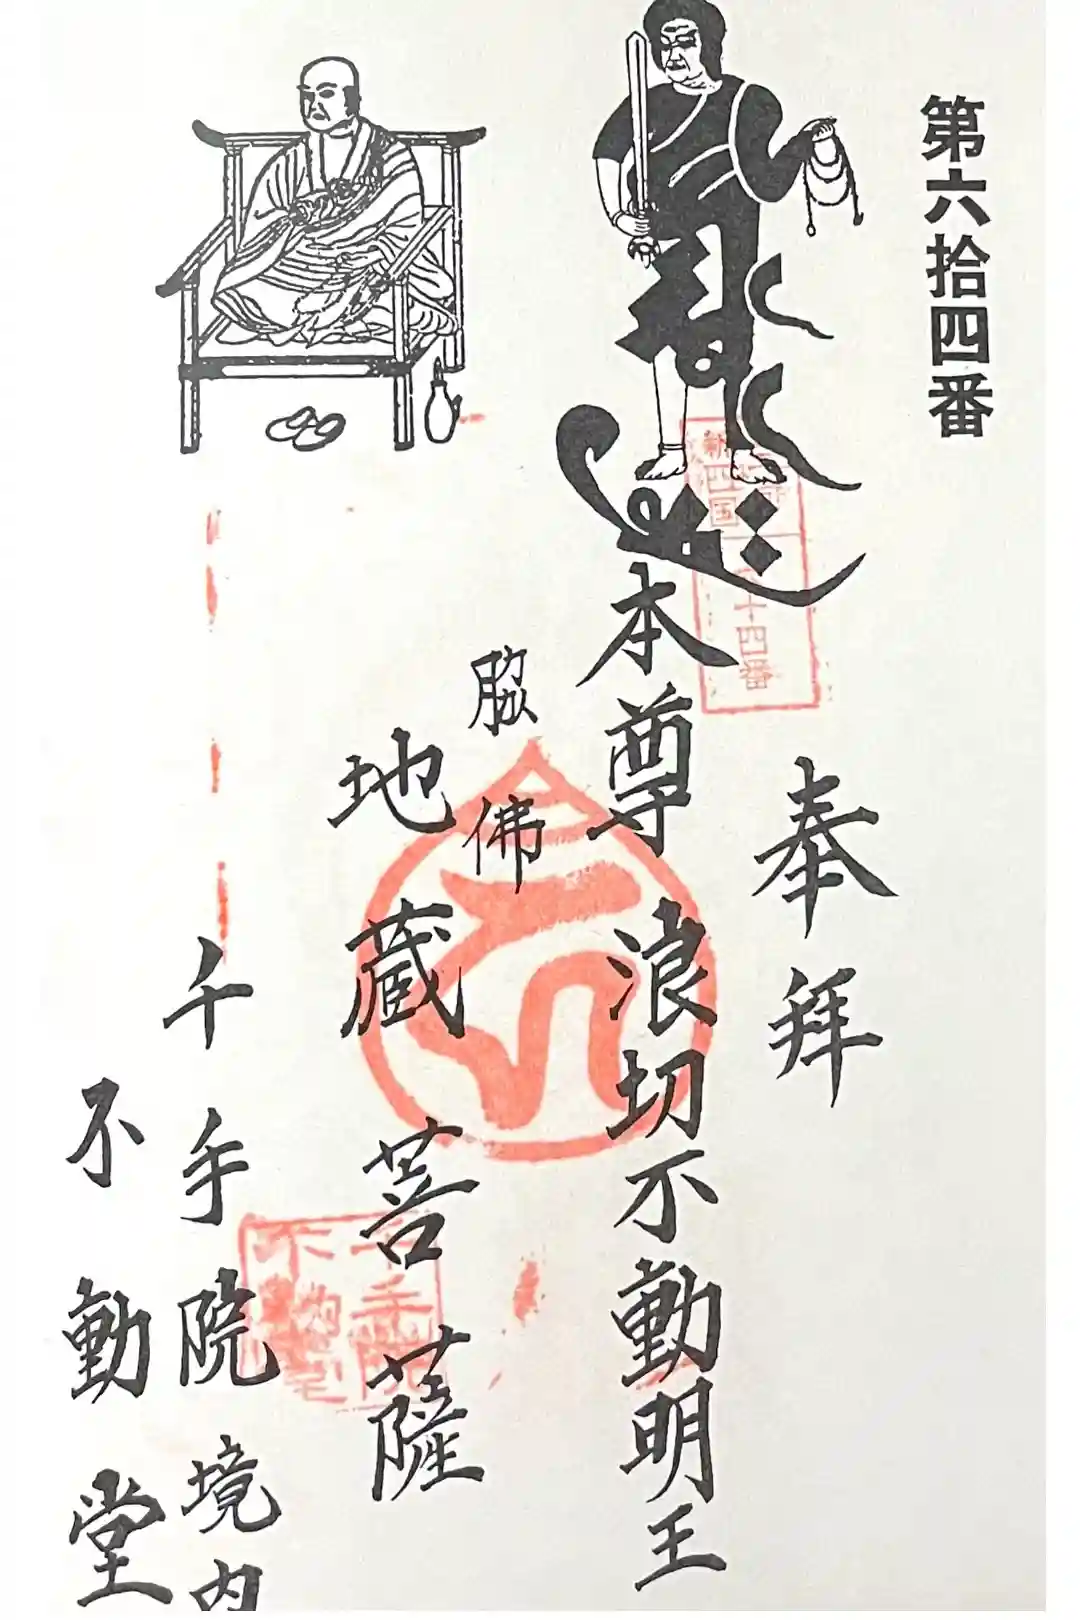 第六拾四番
奉拝
本尊 浪切不動明王
脇佛
地蔵菩薩
千手院境内
不動堂
四国
十四番
千手院
不動堂